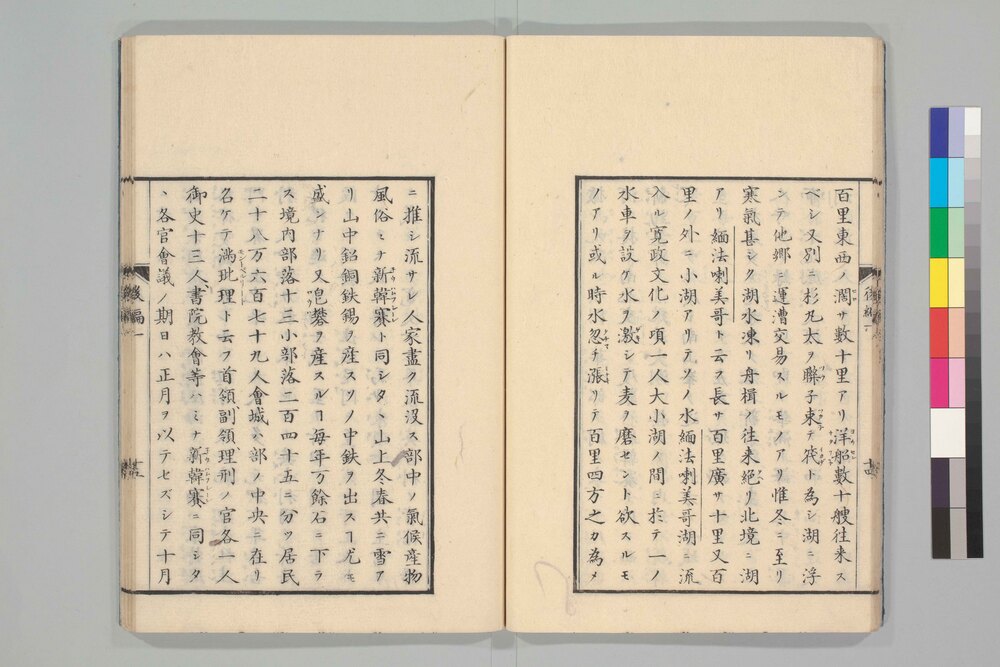 百里東西ノ濶サ數十里アリ洋船數十艘往来ス
ベシ又別ニ杉丸太ヲ聯子束テ筏ト為シ湖ニ浮
ンテ他郷ニ運漕交易スルモノアリ惟冬ニ至リ
寒氣甚シク湖水凍リ舟楫ノ往来絶リ北境ニ湖
アリ緬法喇美哥ト云フ長サ百里廣サ十里又百
里ノ外ニ小湖アリテソノ水緬法喇美哥湖ニ流
入ル寛政文化ノ項一人大小湖ノ間ニ於テ一ノ
水車ヲ設ケ水ヲ激シテ麦ヲ磨セント欲スルモ
ノアリ或ル時水忽チ漲リテ百里四方之カ為メ
ニ推シ流サレ人家盡ク流沒ス部中ノ氣候産物
風俗ミナ新韓賽ト同シタヽ山上冬春共ニ雪ア
リ山中鉛銅鉄錫ヲ産スソノ中鉄ヲ出スヿ尤モ
盛ンナリ又皂礬ヲ産スルヿ毎年万餘石ニ下ラ
ス境内部落十三小部落二百四十五ニ分ツ居民
二十八万六百七十九人會城ハ部ノ中央ニ在リ
名ケテ満玭理ト云フ首領副領理刑ノ官各一人
御史十三人書院教會等ハミナ新韓賽ニ同シタ
ヽ各官會議ノ期日ハ正月ヲ以テセズシテ十月
後編一